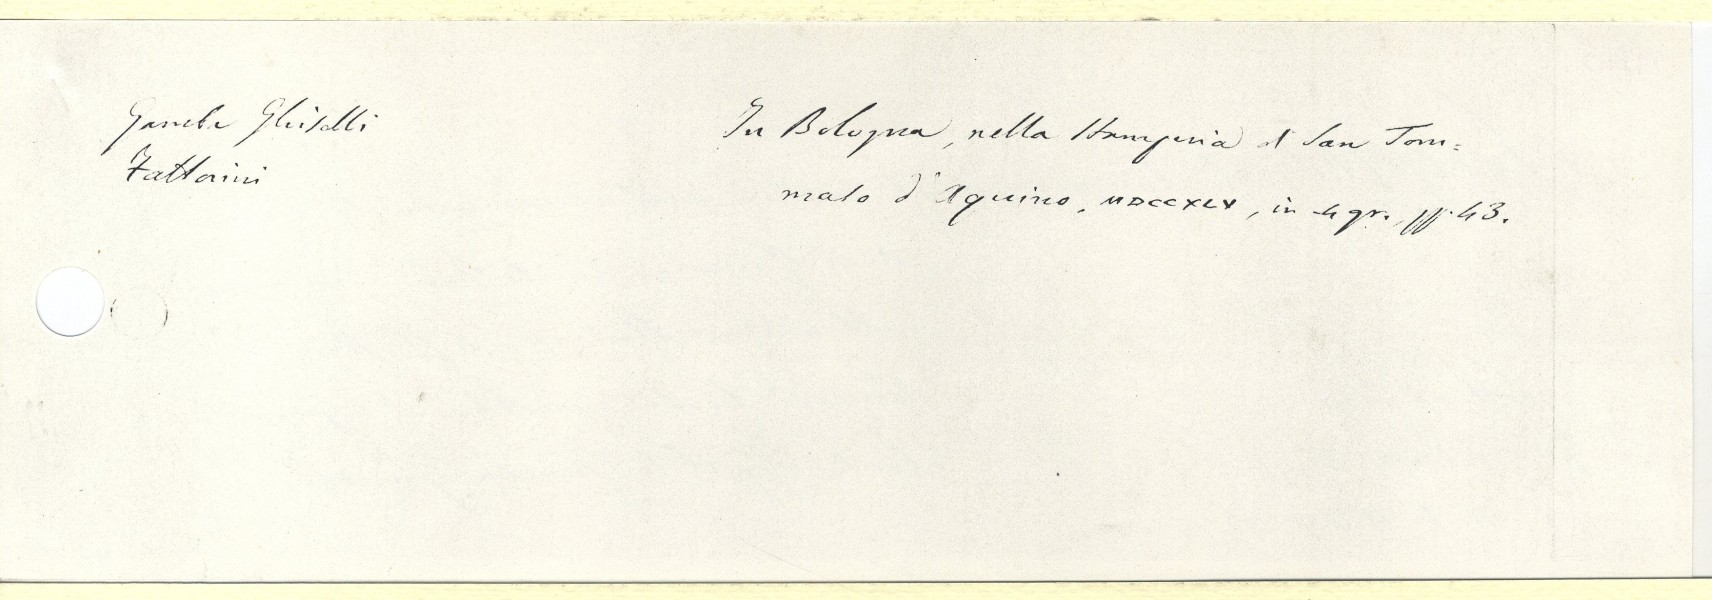 Ghiselli
Fattorini
In Bologna, nella Stamperia di San Tom=
maso d'Aquino, MDCCXLV, in 4 gr., pp. 43.